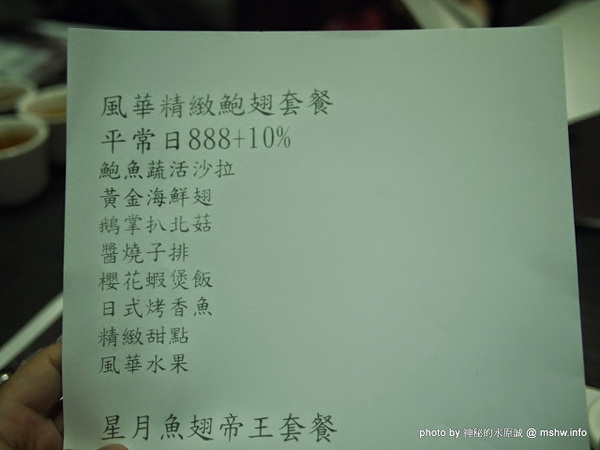 風華精緻鮑翅套餐
平常日888+10%
鮑魚蔬活沙拉
黃金海鮮翅
鵝掌扒北菇
醬燒子排
櫻花蝦煲飯
日式烤香魚
精緻甜點
風華水果
星月魚翅帝王套餐
photo by 神秘的水原誠 @ mshw.info